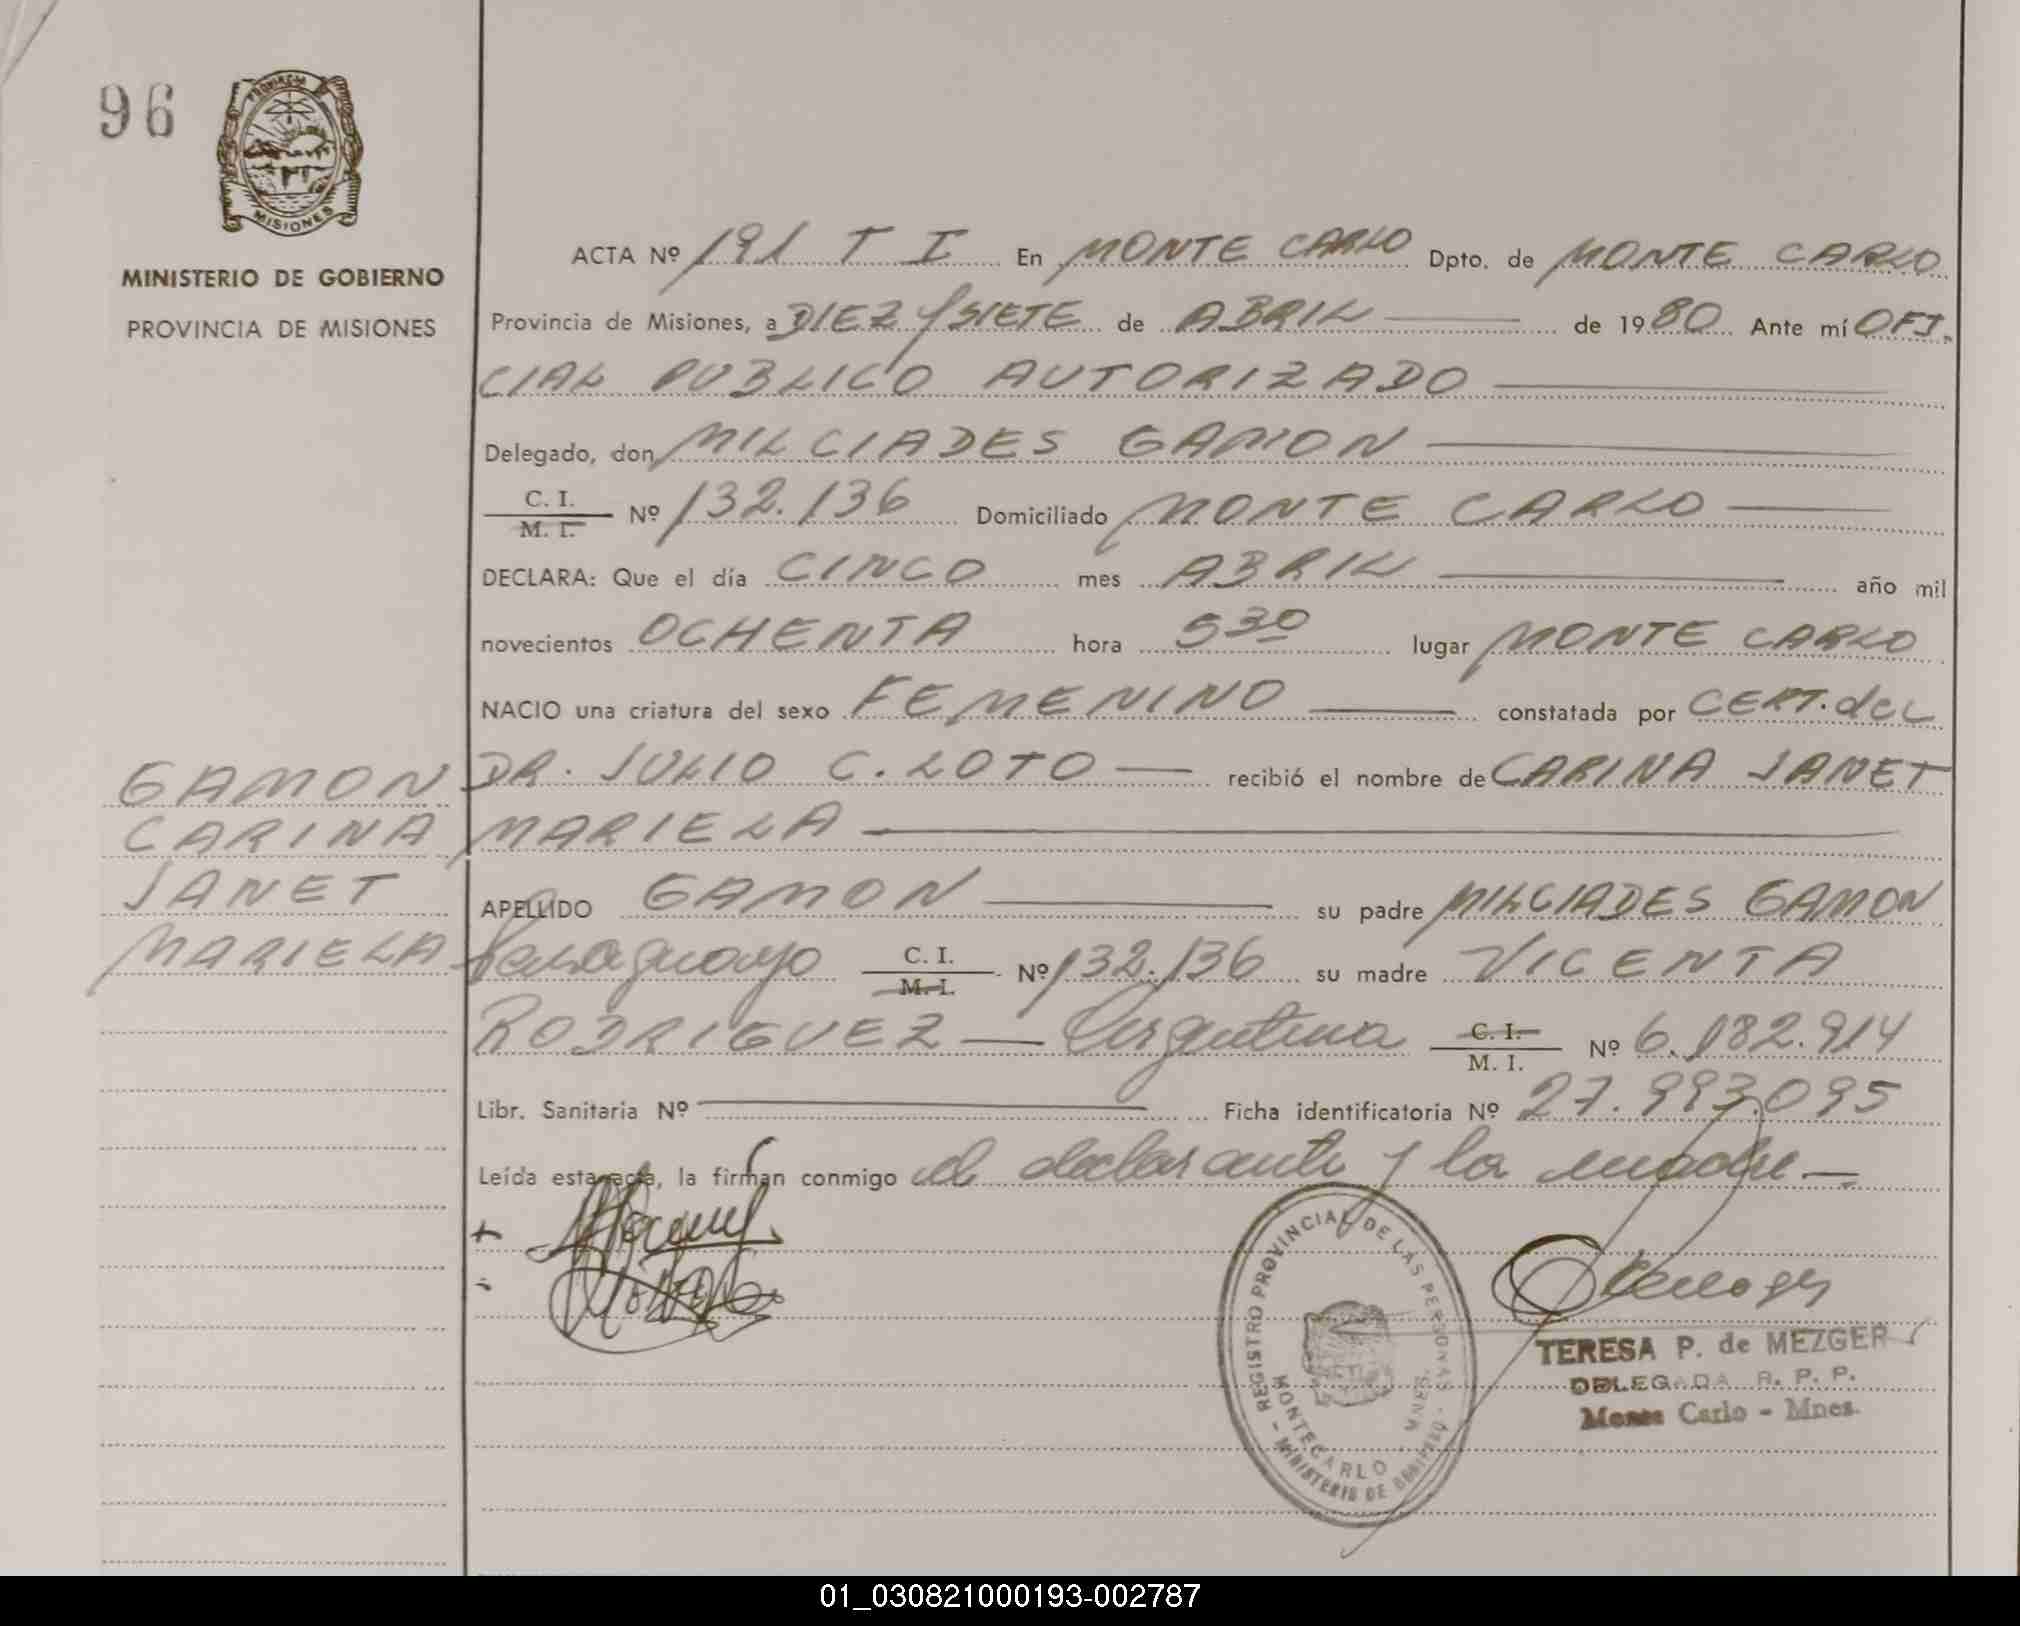 96
PROVINCIA
MISIONES
MINISTERIO DE GOBIERNO
PROVINCIA DE MISIONES
ACTA Nº 191 T I En MONTE CARLO Dpto. de MONTE CARLO
Provincia de Misiones, a DIEZ y SIETE de ABRIL de 1980 Ante mí OFI.
CIAL PUBLICO AUTORIZADO
Delegado, don MILCIADES GAMON
C. I.
M. I. Nº 132.136 Domiciliado MONTE CARLO
DECLARA: Que el día CINCO mes ABRIL año mil
novecientos OCHENTA hora 5 30 lugar MONTE CARLO
NACIO una criatura del sexo FEMENINO constatada por CERT. del
DR. JULIO C. LOTO recibió el nombre de CARINA JANET
MARIELA
GAMON
CARINA
JANET
MARIELA
APELLIDO GAMON su padre MILCIADES GAMON
Paraguayo C. I. M. I. Nº 132.136 su madre VICENTA
RODRIGUEZ Argentina C. I. M. I. Nº 6.182.914
Libr. Sanitaria Nº Ficha identificatoria Nº 27.993.095
Leída esta acta, la firman conmigo el declarante y la madre
REGISTRO PROVINCIAL DE LAS PERSONAS - MINISTERIO DE GOBIERNO -
MONTECARLO - MNES.
TERESA P. de MEZGER
DELEGADA R. P. P.
Monte Carlo - Mnes.
01_030821000193-002787